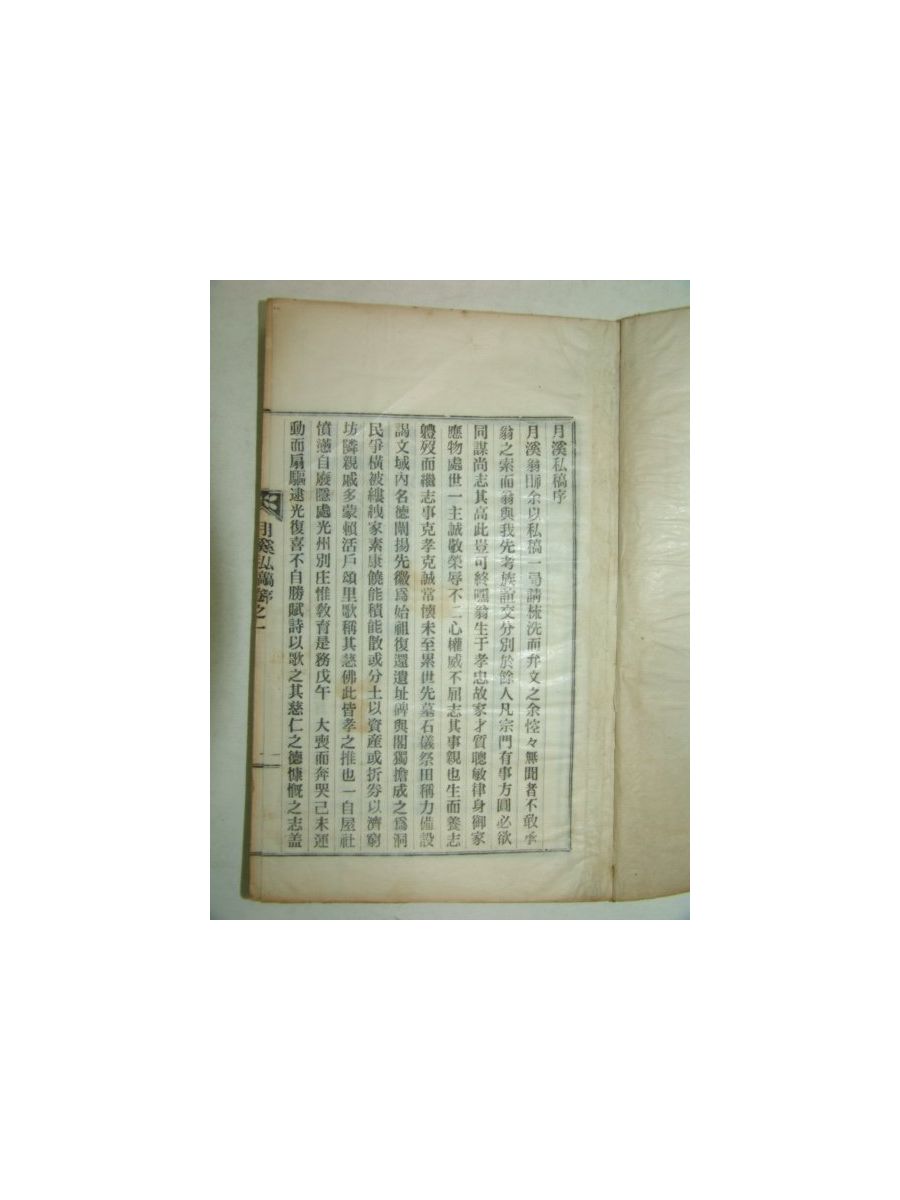 月溪私稿序
月溪翁郵余以私稿一局請梳洗而弁文之余悾々無聞者不敢承
翁之索而翁與我先考族誼交分別於餘人凡宗門有事方圓必欲
同謀尚志其高此豈可終嘿翁生于孝忠故家才質聰敏律身御家
應物處世一主誠敬榮辱不二心權威不屈志其事親也生而養志
軆歿而繼志事克孝克誠常懷未至累世先墓石儀祭田稱力備設
謁文域內名德闡揚先徽爲始祖復還遺址碑與閣獨擔成之爲洞
民爭橫被縷絏家素康饒能積能散或分土以資産或折券以濟窮
坊隣親戚多蒙頼活戶頌里歌稱其慈佛此皆孝之推也一自屋社
憤懣自廢隱處光州別庄惟敎育是務戊午 大喪而奔哭己未運
動而扇驅逮光復喜不自勝賦詩以歌之其慈仁之德慷慨之志盖
月溪私稿序之一